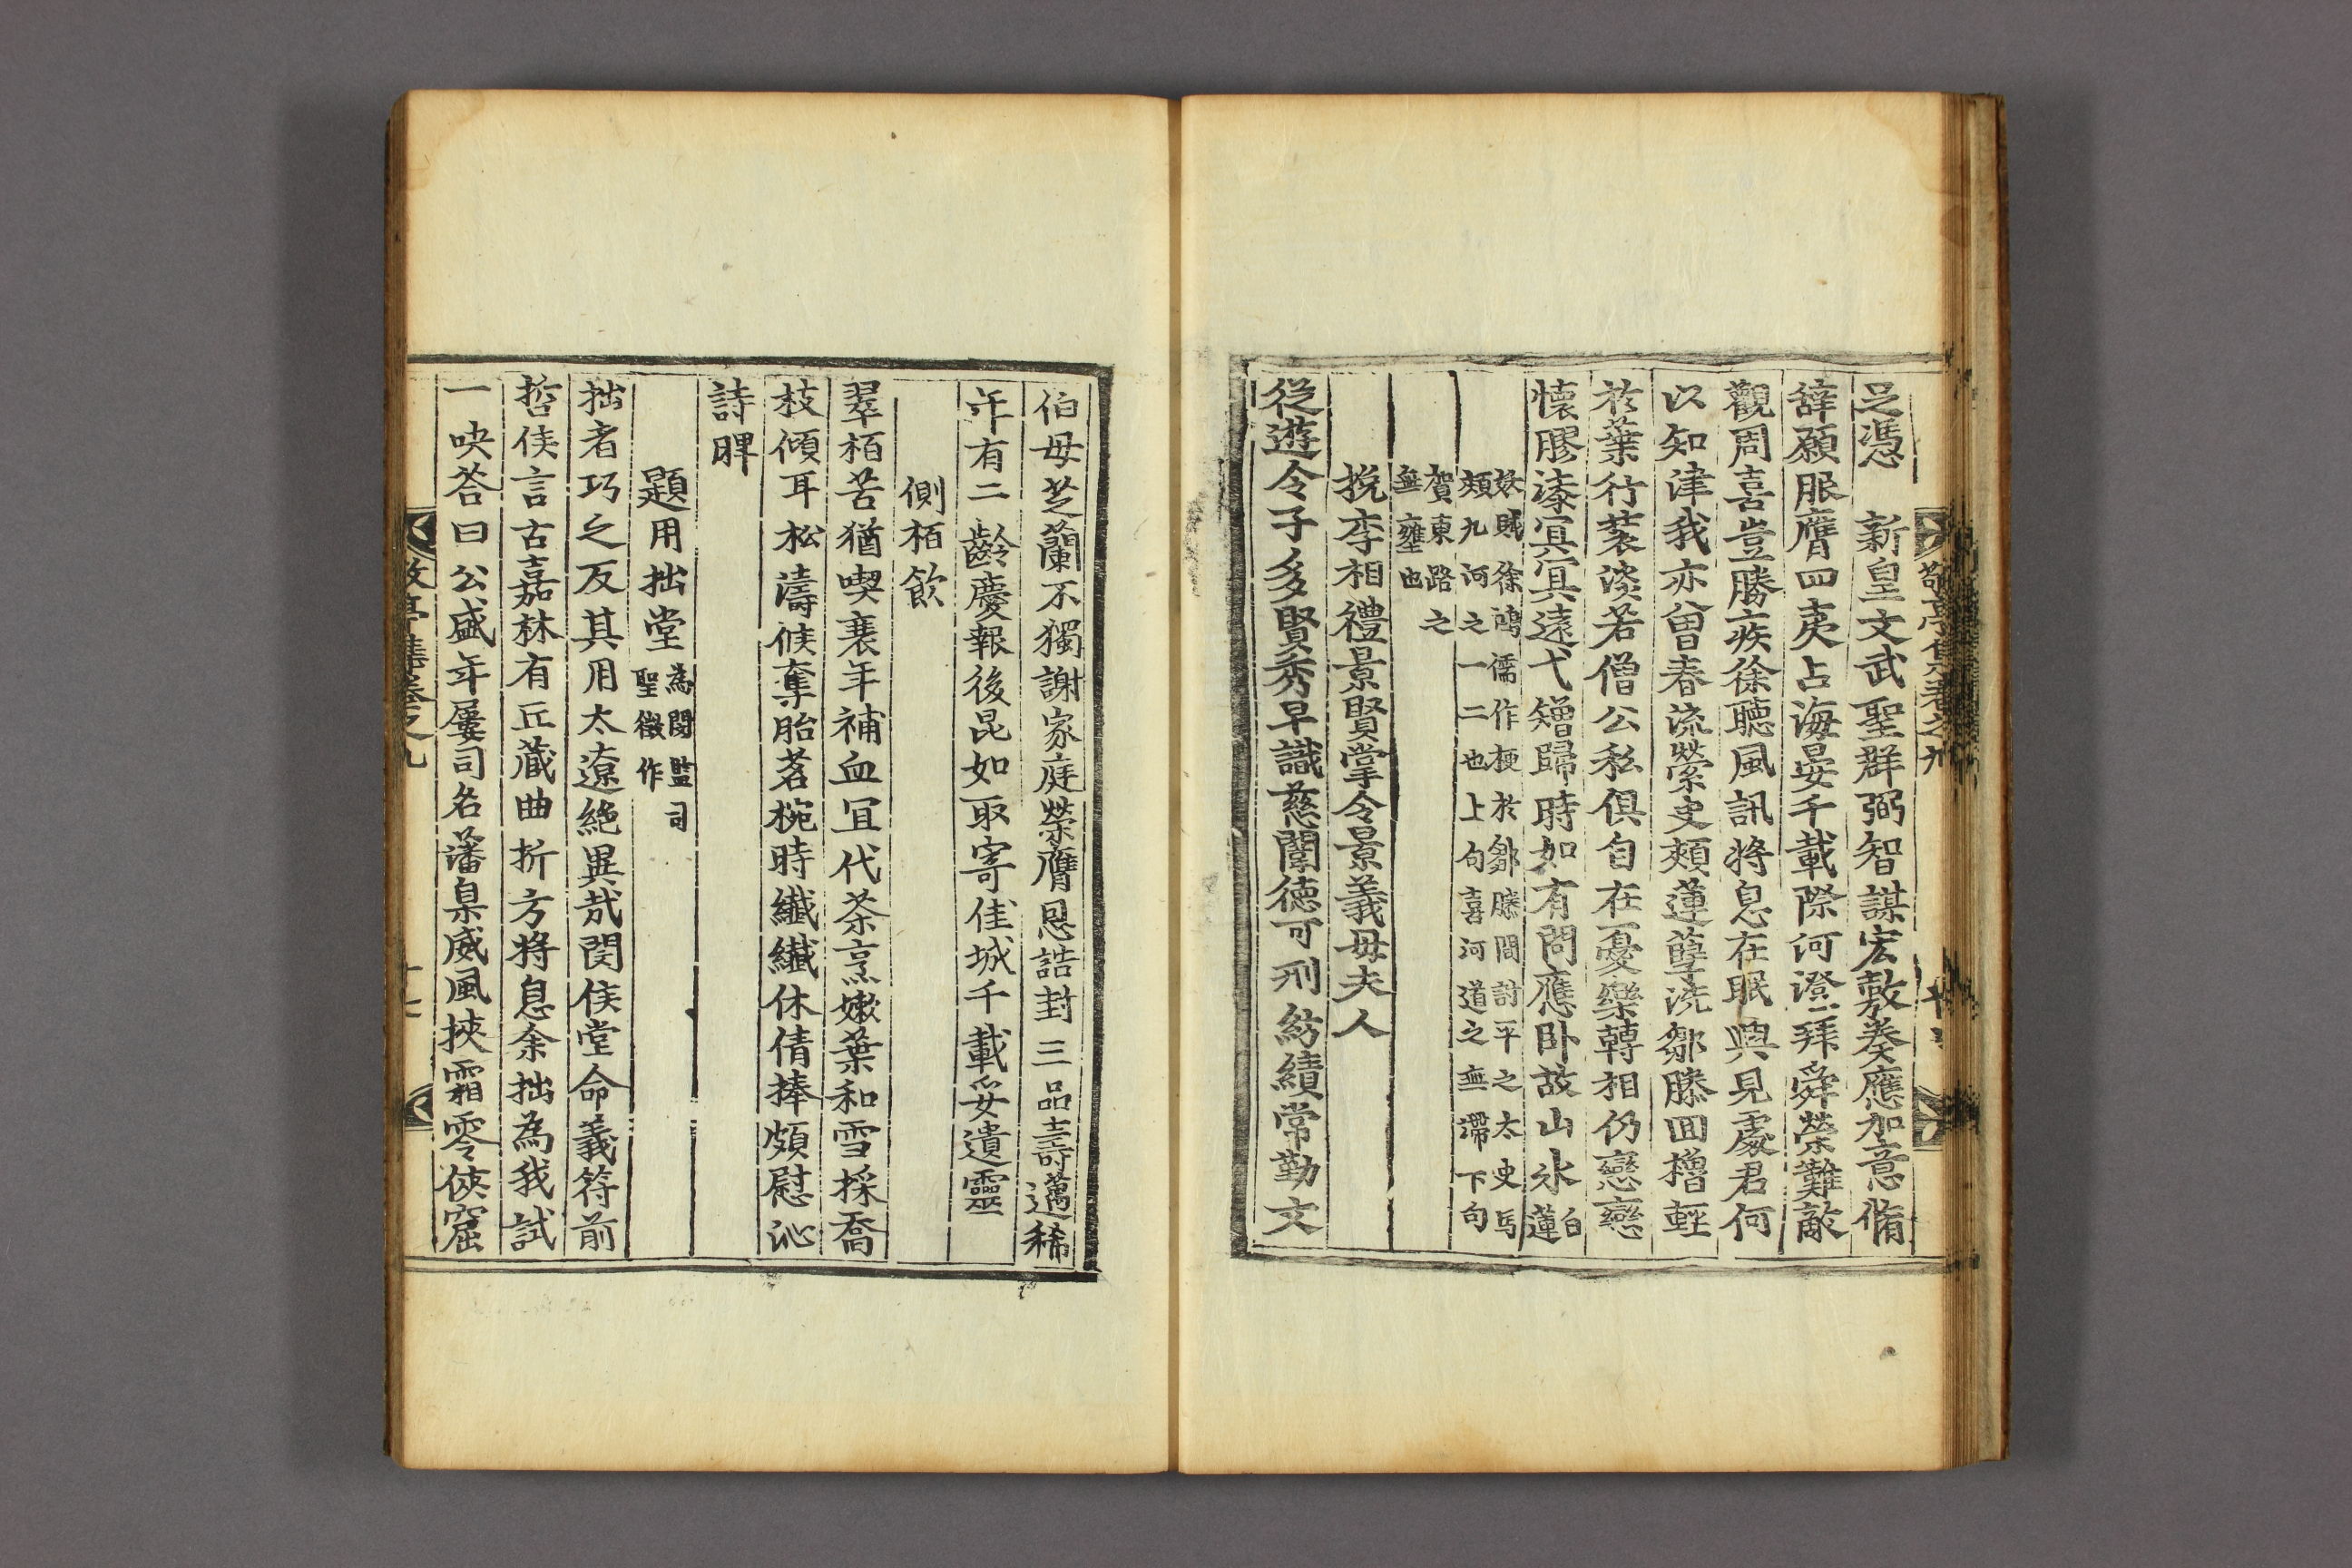 足憑　新皇文武聖群弼智謀宏敷奏應加意脩
辭願服膺四夷占海晏千載際河澄三拜舜榮難敵
觀周喜豈勝去疾徐聽風訊將息在眠興見處君何
以知津我亦曾春流縈吏頰蓮孽洗鄒滕回櫓輕
於葉行蓑淡若僧公私俱自在憂樂轉相仍戀戀
懷膠漆冥冥遠弋矰歸時如有問應卧故山氷白蓮
妖賊徐鴻儒作梗於鄒滕間討平之太史馬
頰九河之一二也上句喜河道之無滯下句
賀東路之
無壅也
挽李相禮景賢掌令景義母夫人
從遊令子多賢秀早識慈闈德可刑紡績常勤文
伯母芝蘭不獨謝家庭榮膺恩誥封三品壽邁稀
年有二齡慶報後昆如取寄佳城千載妥遺靈
側栢飲
翠栢苦猶喫衰年補血冝代茶烹嫩葉和雪採喬
枝傾耳松濤候奪胎茗椀時纖纖休倩捧頗慰沁
詩脾
題用拙堂
為閔監司
聖徵作
拙者巧之反其用太遼絶異㦲閔侯堂命義符前
哲侯言古嘉林有丘藏曲折方將息余拙為我試
一吷答曰公盛年屢司名藩臬威風挾霜零俠窟
敬亭集卷之九